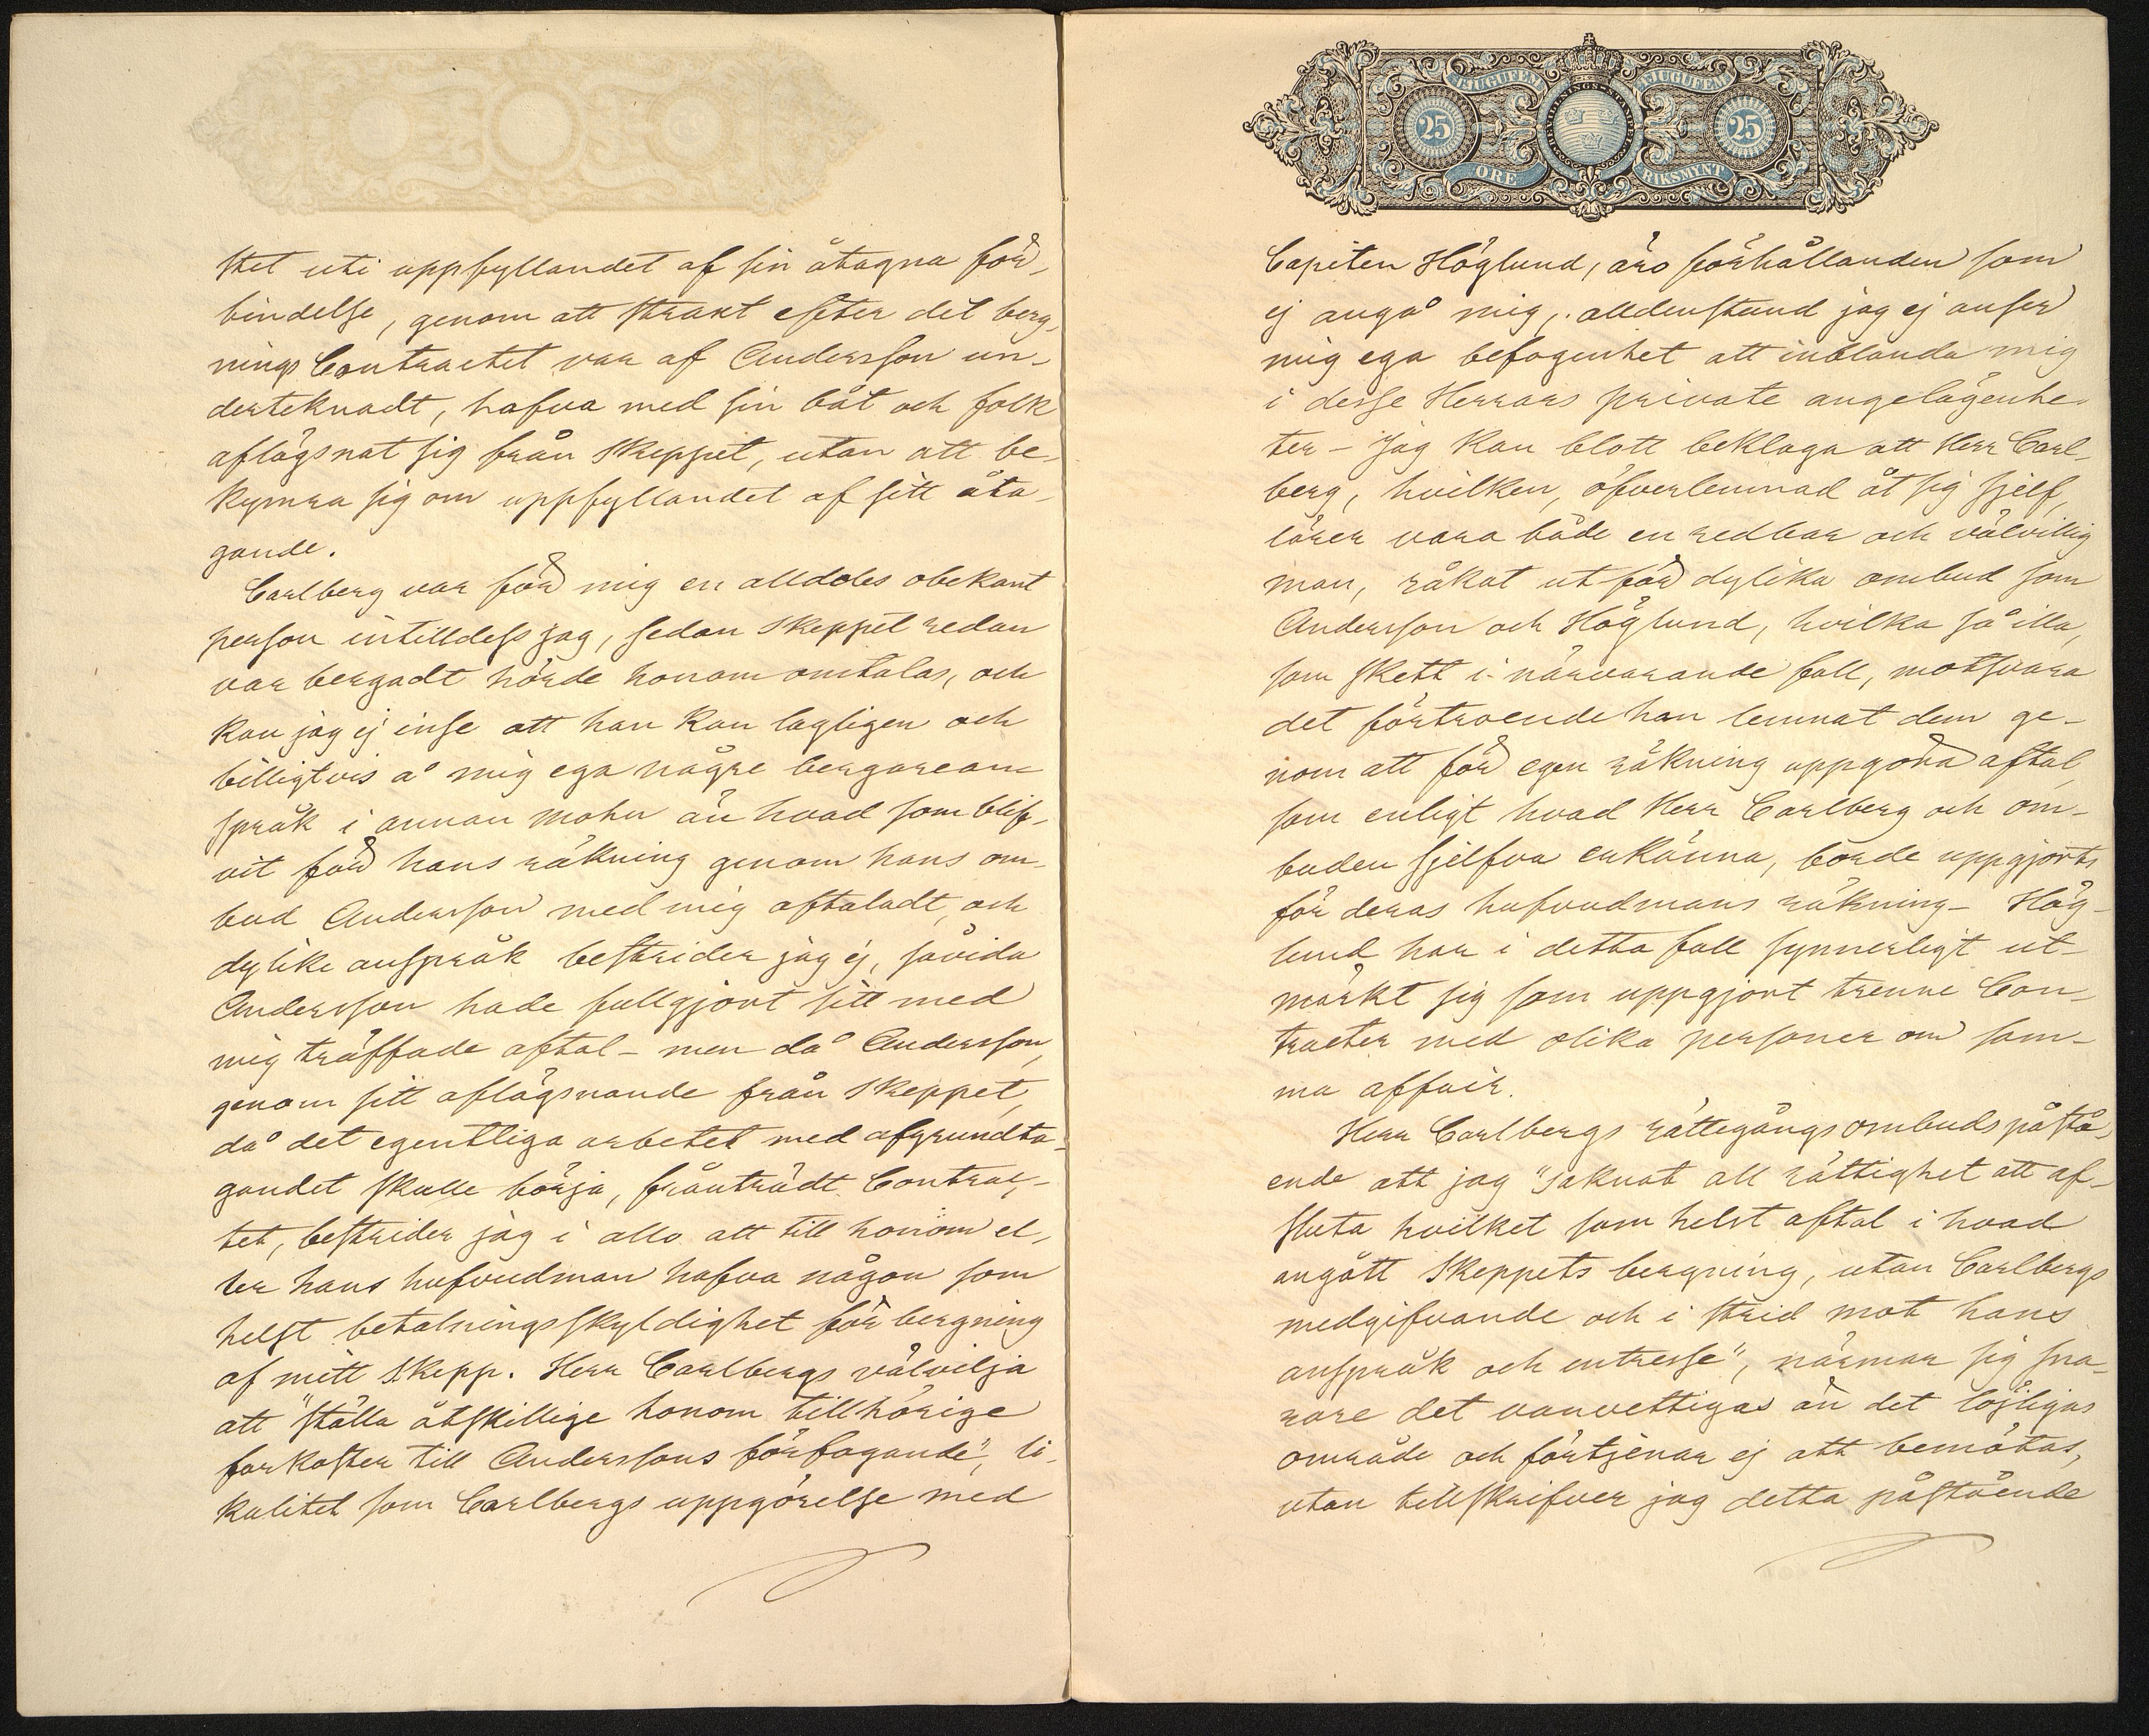 stet uti uppfyllandet af sin åtagna för-
bindelse, genom att straxt efter det berg-
nings Contractet var af Andersson un-
dertecknadt, hafva med sin båt och folk
aflägsnat sig från Skeppet, utan att be-
kymra sig om uppfyllandet af sitt åta-
gande.
Carlberg var för mig en alldeles obekant
person intilldess jag, sedan Skeppet redan
var bergadt hörde honom omtalas, och
kan jag ej inse att han kan lagligen och
billigtvis å mig ega några bergarean-
språk i annan mohn än hvad som blif-
vit för hans räkning genom hans om-
bud Andersson med mig aftaladt, och
dylike anspråk bestrider jag ej, såvida
Andersson hade fullgjort sitt med
mig träffade aftal – men då Andersson,
genom sitt aflägsnande från Skeppet,
då det egentliga arbetet med afgrundta-
gandet skulle börja, frånträdt Contrac-
tet, bestrider jag i allo att till honom el-
ler hans hufvudman hafva någon som
helst betalningsskyldighet för bergning
af mitt Skepp. Herr Carlbergs välvilja
att "ställa åtskillige honom tillhörige
farkoster till Anderssons förfogande", li-
kalitet som Carlbergs uppgörelse med
TJUGUFEM TJUGUFEM
BEVILLNINGS-STÄMPEL
25 25
ÖRE RIKSMYNT
Capiten Höglund, äro förhållanden som
ej angå mig, alldenstund jag ej anser
mig ega befogenhet att inblanda mig
i desse Herrars private angelägenhe-
ter – Jag kan blott beklaga att Herr Carl-
berg, hvilken, öfverlemnad åt sig sjelf,
lärer vara både en redbar och välvillig
man, råkat ut för dylika ombud som
Andersson och Höglund, hvilka så illa,
som skett i närvarande fall, motsvara
det förtroende han lemnat dem ge-
nom att för egen räkning uppgöra aftal,
som enligt hvad Herr Carlberg och om-
buden sjelfva erkänna, borde uppgjorts
för deras hufvudmans räkning – Hög-
lund har i detta fall synnerligt ut-
märkt sig som uppgjort trenne Con-
tracter med olika personer om sam-
ma affair.
Herr Carlbergs rättegångsombuds påstå-
ende att jag "saknat all rättighet att af-
sluta hvilket som helst aftal i hvad
angått Skeppets bergning, utan Carlbergs
medgifvande och i strid mot hans
anspråk och intresse", närmar sig sna-
rare det vanvettigas än det löjligas
område och förtjenar ej att bemötas,
utan tillskrifver jag detta påstående